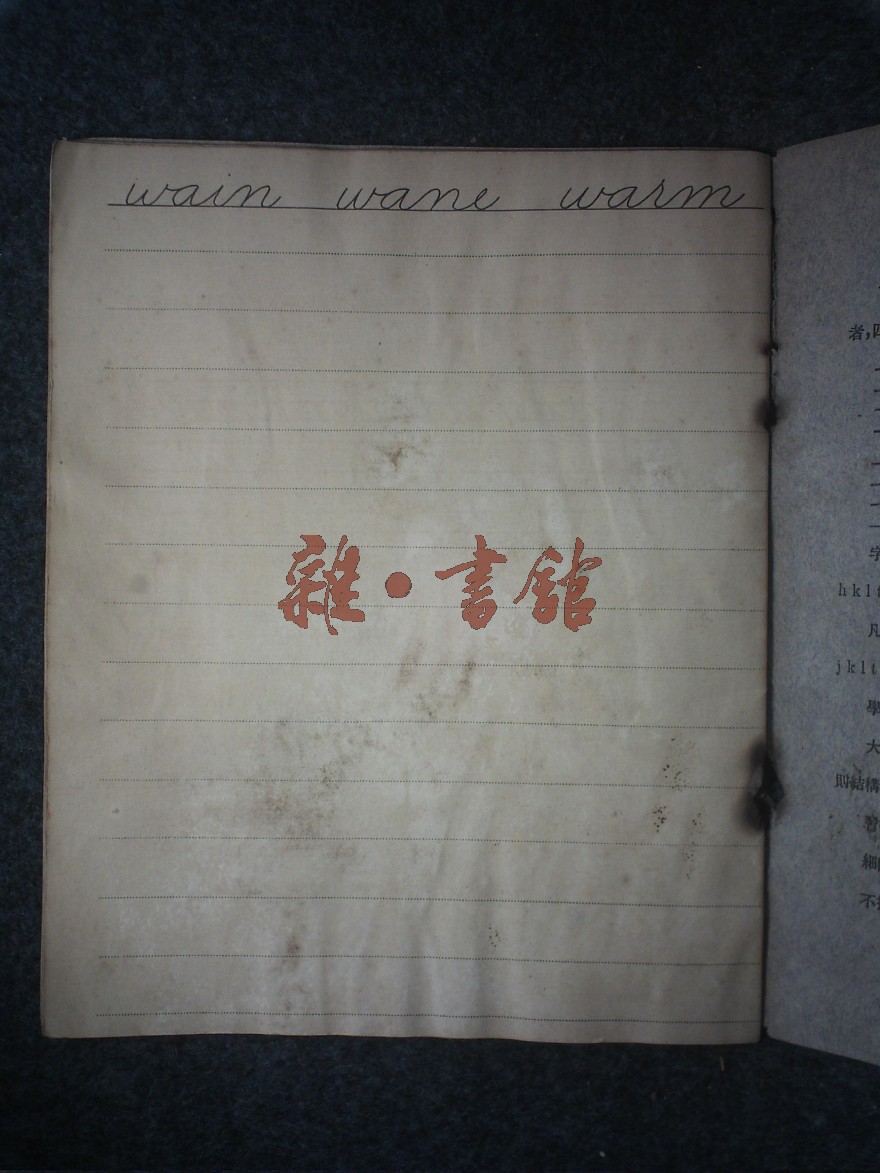 wain wane warm
雜·書館
者,
hkl
凡
jklt
學
大
則結構
細
不